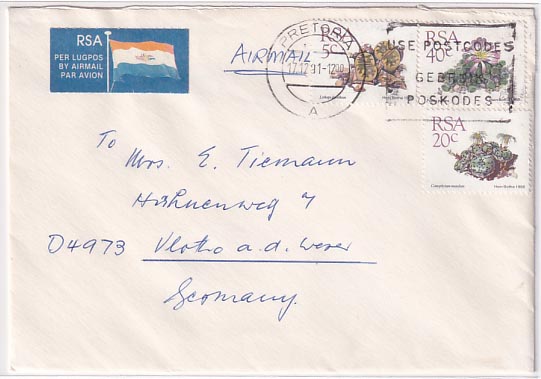 RSA
PER LUGPOS
BY AIRMAIL
PAR AVION
AIRMAIL
PRETORIA
17.12.91-1200
A
RSA
5c
RSA
40c
USE POSTCODES
GEBRUIK
POSKODES
RSA
20c
To
Mrs. E. Tiemann
Hahnenweg 7
D4973 Vlotho a.d. Weser
Germany.